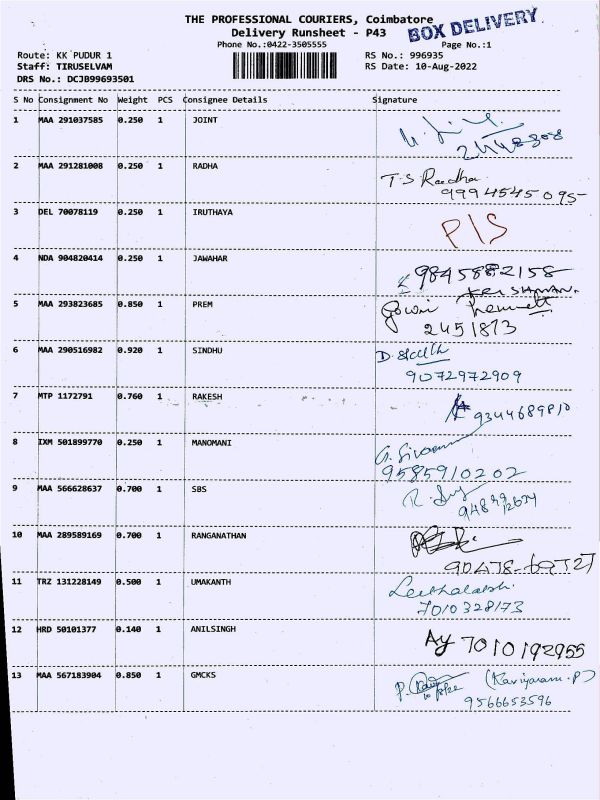 THE PROFESSIONAL COURIERS, Coimbatore
BOX DELIVERY
Delivery Runsheet - P43
Phone No.:0422-3505555
Page No.:1
Route: KK PUDUR 1
RS No.: 996935
Staff: TIRUSELVAM
RS Date: 10-Aug-2022
DRS No.: DCJB99693501
S No Consignment No Weight PCS Consignee Details Signature
1 MAA 291037585 0.250 1 JOINT
2 MAA 291281008 0.250 1 RADHA T.S Radha
9994545095
3 DEL 70078119 0.250 1 IRUTHAYA P/S
4 NDA 904820414 0.250 1 JAWAHAR 9845882158
KRISHNAN.
5 MAA 293823685 0.850 1 PREM Gowri
2451813
6 MAA 290516982 0.920 1 SINDHU D.
9072972909
7 MTP 1172791 0.760 1 RAKESH 9344689810
8 IXM 501899770 0.250 1 MANOMANI
9585910202
9 MAA 566628637 0.700 1 SBS
10 MAA 289589169 0.700 1 RANGANATHAN
11 TRZ 131228149 0.500 1 UMAKANTH
7010328173
12 HRD 50101377 0.140 1 ANILSINGH Ay 7010192955
13 MAA 567183904 0.850 1 GMCKS P. (Kaviyaram.P)
9566653596